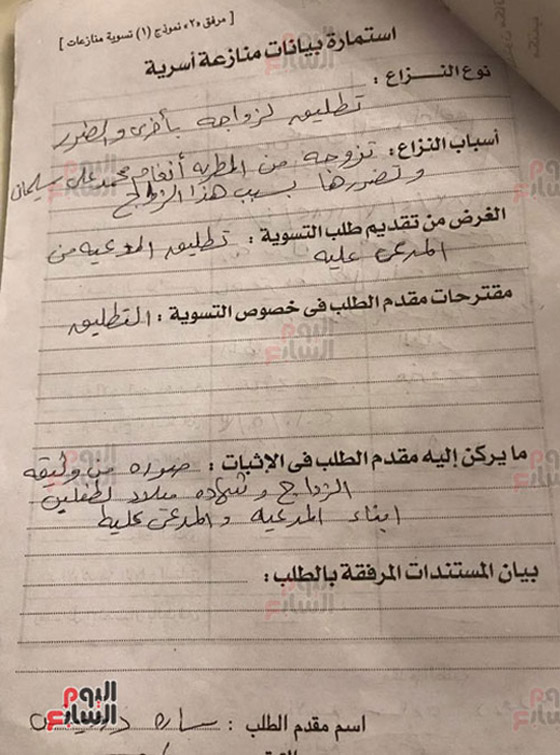 [ مرفق «٢» نموذج (١) تسوية منازعات ]
استمارة بيانات منازعة أسرية
نوع النزاع :
تطليق لزواجه بأخرى والضرر
أسباب النزاع : تزوجه من المطربه أنغام محمد على سليمان
وتضررها بسبب هذا الزواج
الغرض من تقديم طلب التسوية : تطليق المدعيه من
المدعى عليه
مقترحات مقدم الطلب فى خصوص التسوية : التطليق
ما يركن إليه مقدم الطلب فى الإثبات : صوره من وثيقه
الزواج وشهاده ميلاد لطفلين
ابناء المدعيه والمدعى عليه
بيان المستندات المرفقة بالطلب :
اسم مقدم الطلب : ساره
اليوم السابع